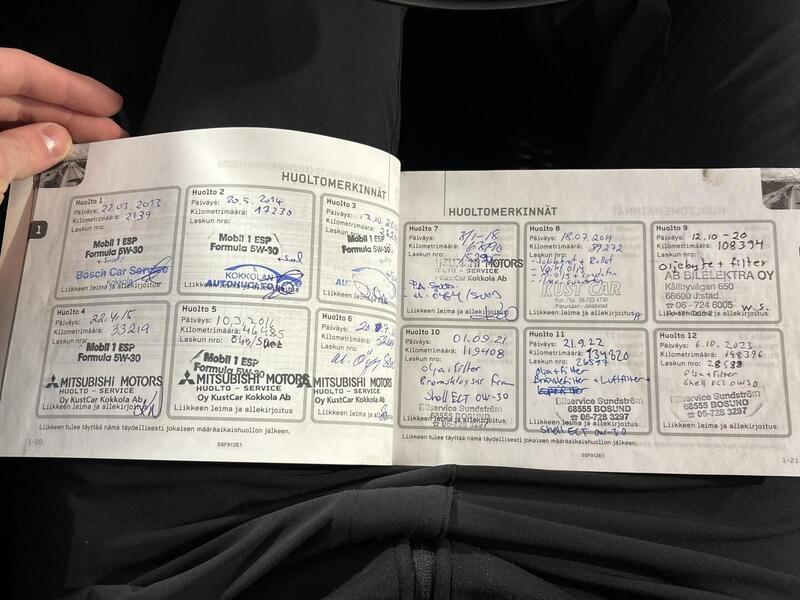 HUOLTOMERKINNÄT
1
Huolto 1
Päiväys: 22.03.2013
Kilometrimäärä: 2139
Laskun nro:
Mobil 1 ESP
Formula 5W-30
Bosch Car Service
Liikkeen leima ja allekirjoitus
Huolto 2
Päiväys: 20.5.2014
Kilometrimäärä: 17230
Laskun nro:
Mobil 1 ESP
Formula 5W-30
KOKKOLAN
AUTOHUOLTO
Liikkeen leima ja allekirjoitus
Huolto 3
Päiväys:
Kilometrimäärä:
Laskun nro:
Mobil 1 ESP
Formula 5W-30
Liikkeen leima ja
Huolto 4
Päiväys: 22.4.15
Kilometrimäärä: 33219
Laskun nro:
Mobil 1 ESP
Formula 5W-30
MITSUBISHI MOTORS
HUOLTO - SERVICE
Oy KustCar Kokkola Ab
Liikkeen leima ja allekirjoitus
Huolto 5
Päiväys:
Kilometrimäärä: 46485
Laskun nro:
Mobil 1 ESP
Formula 5W-30
MITSUBISHI MOTORS
HUOLTO - SERVICE
Oy KustCar Kokkola Ab
Liikkeen leima ja allekirjoitus
Huolto 6
Päiväys:
Kilometrimäärä:
Laskun nro:
MITSUBISHI MOTORS
HUOLTO - SERVICE
Oy KustCar Kokkola Ab
Liikkeen leima ja
Liikkeen tulee täyttää nämä täydellisesti jokaisen määräaikaishuollon jälkeen.
1-20
SSF912E1
HUOLTOMERKINNÄT
Huolto 7
Päiväys: 3/1-18
Kilometrimäärä:
Laskun nro:
MOTORS
HUOLTO - SERVICE
KustCar Kokkola Ab
Liikkeen leima ja allekirjoitus
Huolto 8
Päiväys: 18.07.2019
Kilometrimäärä:
Laskun nro:
KUST CAR
Liikkeen leima ja allekirjoitus
Huolto 9
Päiväys: 12.10-20
Kilometrimäärä: 108394
Laskun nro:
oljebyte + filter
AB BILELEKTRA OY
Källbyvägen 650
68820
06 - 724 6005 W.S.
Huolto 10
Päiväys: 01.09.21
Kilometrimäärä: 119408
Laskun nro:
olja + filter
Shell ECT 0W-30
Bilservice Sundström
68555 BOSUND
☎ 06-728 3297
Liikkeen leima ja allekirjoitus
Huolto 11
Päiväys: 21.9.22
Kilometrimäärä: 134820
Laskun nro: 26597
olja + filter
+ Luftfilter +
Bilservice Sundström
68555 BOSUND
☎ 06-728 3297
Liikkeen leima ja allekirjoitus
Shell ECT 0W-30
Huolto 12
Päiväys: 6.10.2023
Kilometrimäärä: 148396
Laskun nro: 28588
olja + filter
Shell ECT 0W30
Bilservice Sundström
68555 BOSUND
☎ 06-728 3297
Liikkeen leima ja allekirjoitus
Liikkeen tulee täyttää nämä täydellisesti jokaisen määräaikaishuollon jälkeen.
SSF912E1
1-21